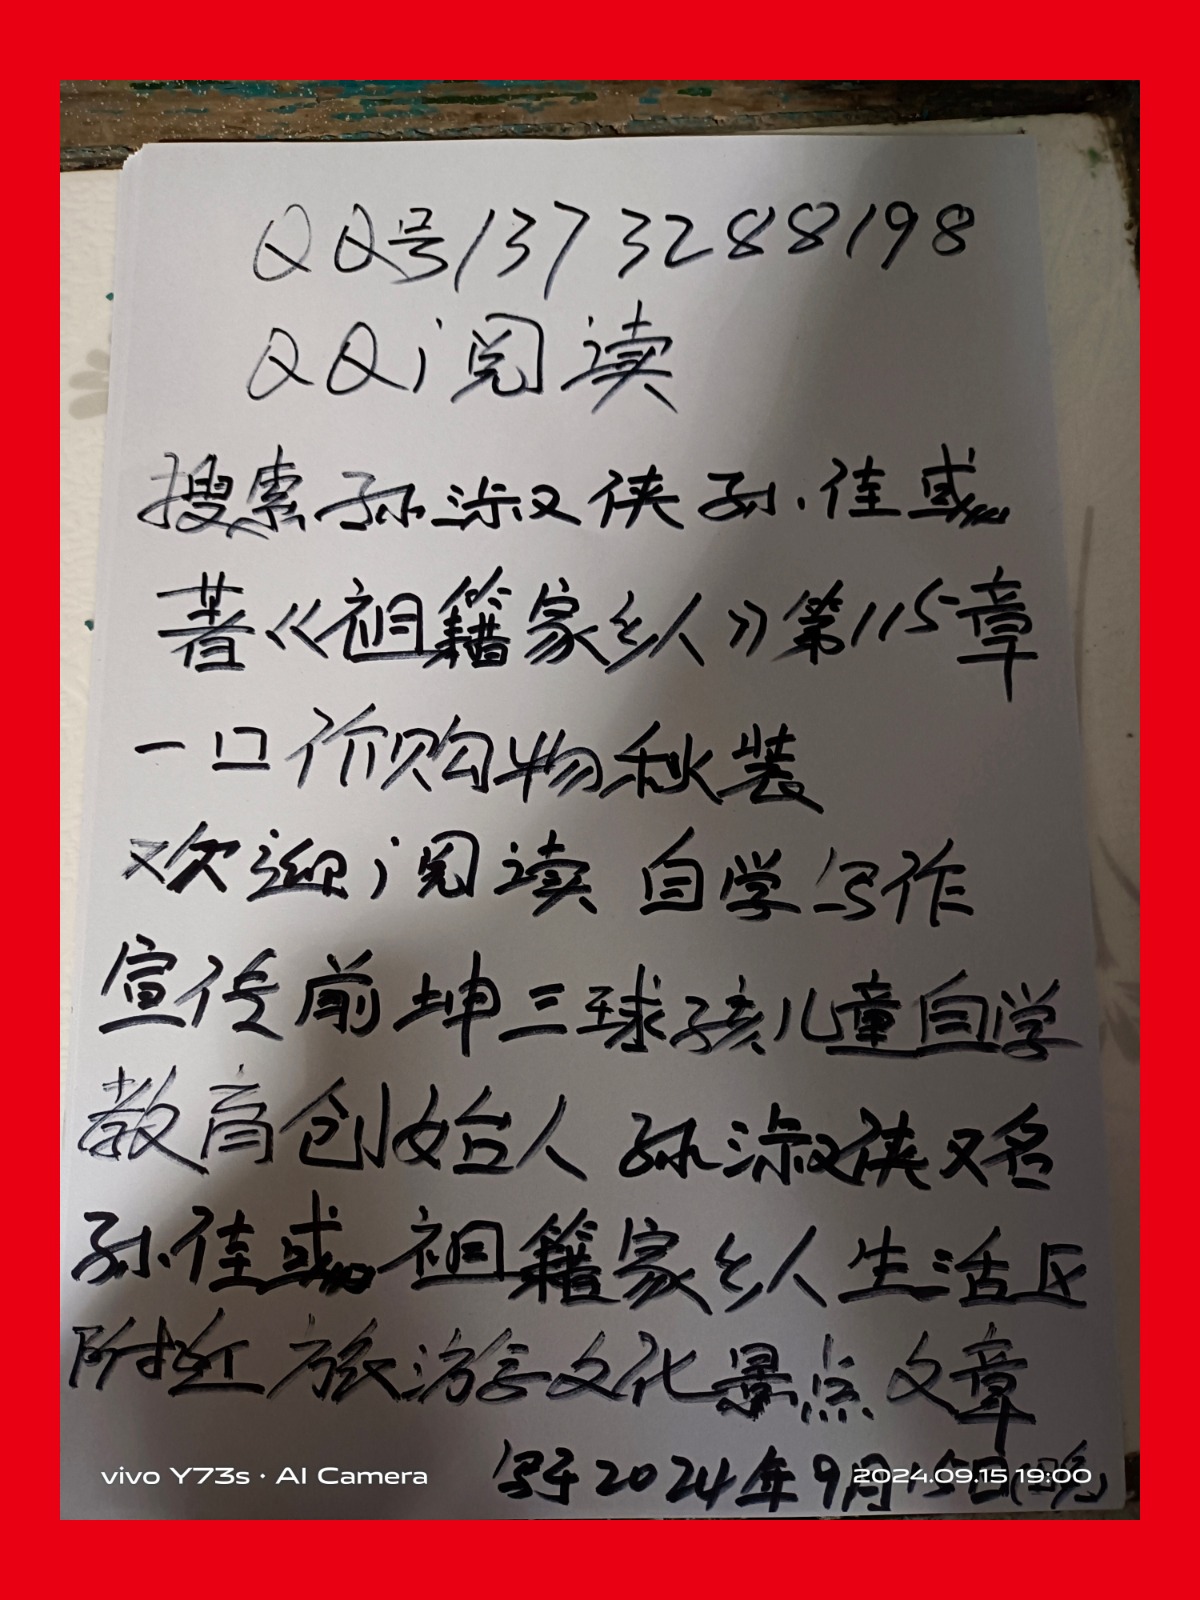 QQ号1373288198
QQ阅读
搜索孙淑侠孙佳或
著《祖籍家乡人》第115章
一口价购物秋装
欢迎阅读 自学写作
宣传前坤三球孩儿童自学
教育创始人 孙淑侠又名
孙佳或 祖籍家乡人生活区
附近旅游文化景点文章
写于2024年9月15日
vivo Y73s · AI Camera
2024.09.15 19:00